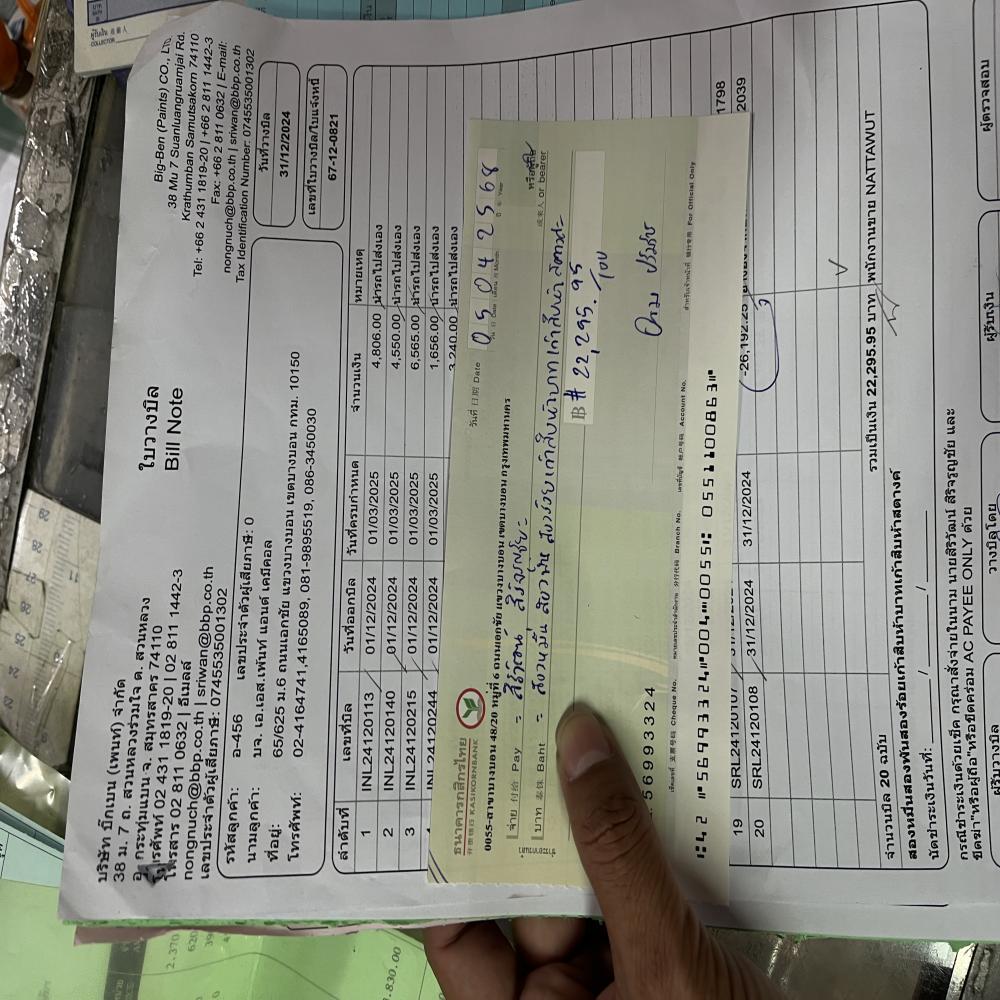 บริษัท บิ๊กเบน (เพนท์) จำกัด
38 ม. 7 ถ. สวนหลวงร่วมใจ ต. สวนหลวง
อ. กระทุ่มแบน จ. สมุทรสาคร 74110
โทรศัพท์ 02 431 1819-20 | 02 811 1442-3
โทรสาร 02 811 0632 | อีเมลล์
nongnuch@bbp.co.th | sriwan@bbp.co.th
เลขประจำตัวผู้เสียภาษี: 0745535001302
ใบวางบิล
Bill Note
Big-Ben (Paints) CO., LTD.
38 Mu 7 Suanluangruamjai Rd.
Krathumban Samutsakorn 74110
Tel: +66 2 431 1819-20 | +66 2 811 1442-3
Fax: +66 2 811 0632 | E-mail:
nongnuch@bbp.co.th | sriwan@bbp.co.th
Tax Identification Number: 0745535001302
รหัสลูกค้า: อ-456 เลขประจำตัวผู้เสียภาษี: 0
นามลูกค้า: บจ. เอ.เอส.เพ้นท์ แอนด์ เคมีคอล
ที่อยู่: 65/625 ม.6 ถนนเอกชัย แขวงบางบอน เขตบางบอน กทม. 10150
โทรศัพท์: 02-4164741,4165089, 081-9895519, 086-3450030
วันที่วางบิล
31/12/2024
เลขที่ใบวางบิล/ใบแจ้งหนี้
67-12-0821
ลำดับที่ เลขที่บิล วันที่ออกบิล วันที่ครบกำหนด จำนวนเงิน หมายเหตุ
1 INL24120113 01/12/2024 01/03/2025 4,806.00 นำรถไปส่งเอง
2 INL24120140 01/12/2024 01/03/2025 4,550.00 นำรถไปส่งเอง
3 INL24120215 01/12/2024 01/03/2025 6,565.00 นำรถไปส่งเอง
INL24120244 01/12/2024 01/03/2025 1,656.00 นำรถไปส่งเอง
3,240.00 นำรถไปส่งเอง
ธนาคารกสิกรไทย
开泰银行 KASIKORNBANK
0055-สาขาบางบอน 48/20 หมู่ที่ 6 ถนนเอกชัย แขวงบางบอน เขตบางบอน กรุงเทพมหานคร
วันที่ 日期 Date 05 04 2568
จ่าย 付给 Pay - สิริวัฒน์ สิริจรูญชัย - หรือผู้ถือ
或来人 or bearer
บาท 泰铢 Baht - สองหมื่นสองพันสองร้อยเก้าสิบห้าบาทเก้าสิบห้าสตางค์-
฿ # 22,295.95
เลขที่เช็ค 支票号码 Cheque No. Branch No. Account No. For Official Only
56993324
⑈56993324⑈004⑈0055⑆ 0551100863⑈
1798
19 SRL24120107 -26,192.25
2039
20 SRL24120108 31/12/2024 31/12/2024
จำนวนบิล 20 ฉบับ รวมเป็นเงิน 22,295.95 บาท พนักงานขาย NATTAWUT
สองหมื่นสองพันสองร้อยเก้าสิบห้าบาทเก้าสิบห้าสตางค์
นัดชำระเงินวันที่: / /
กรณีชำระเงินด้วยเช็ค กรุณาสั่งจ่ายในนาม นายสิริวัฒน์ สิริจรูญชัย และ
ขีดฆ่า"หรือผู้ถือ"หรือขีดคร่อม AC PAYEE ONLY ด้วย
ผู้วางบิล วางบิลโดย ผู้รับเงิน ผู้ตรวจสอบ